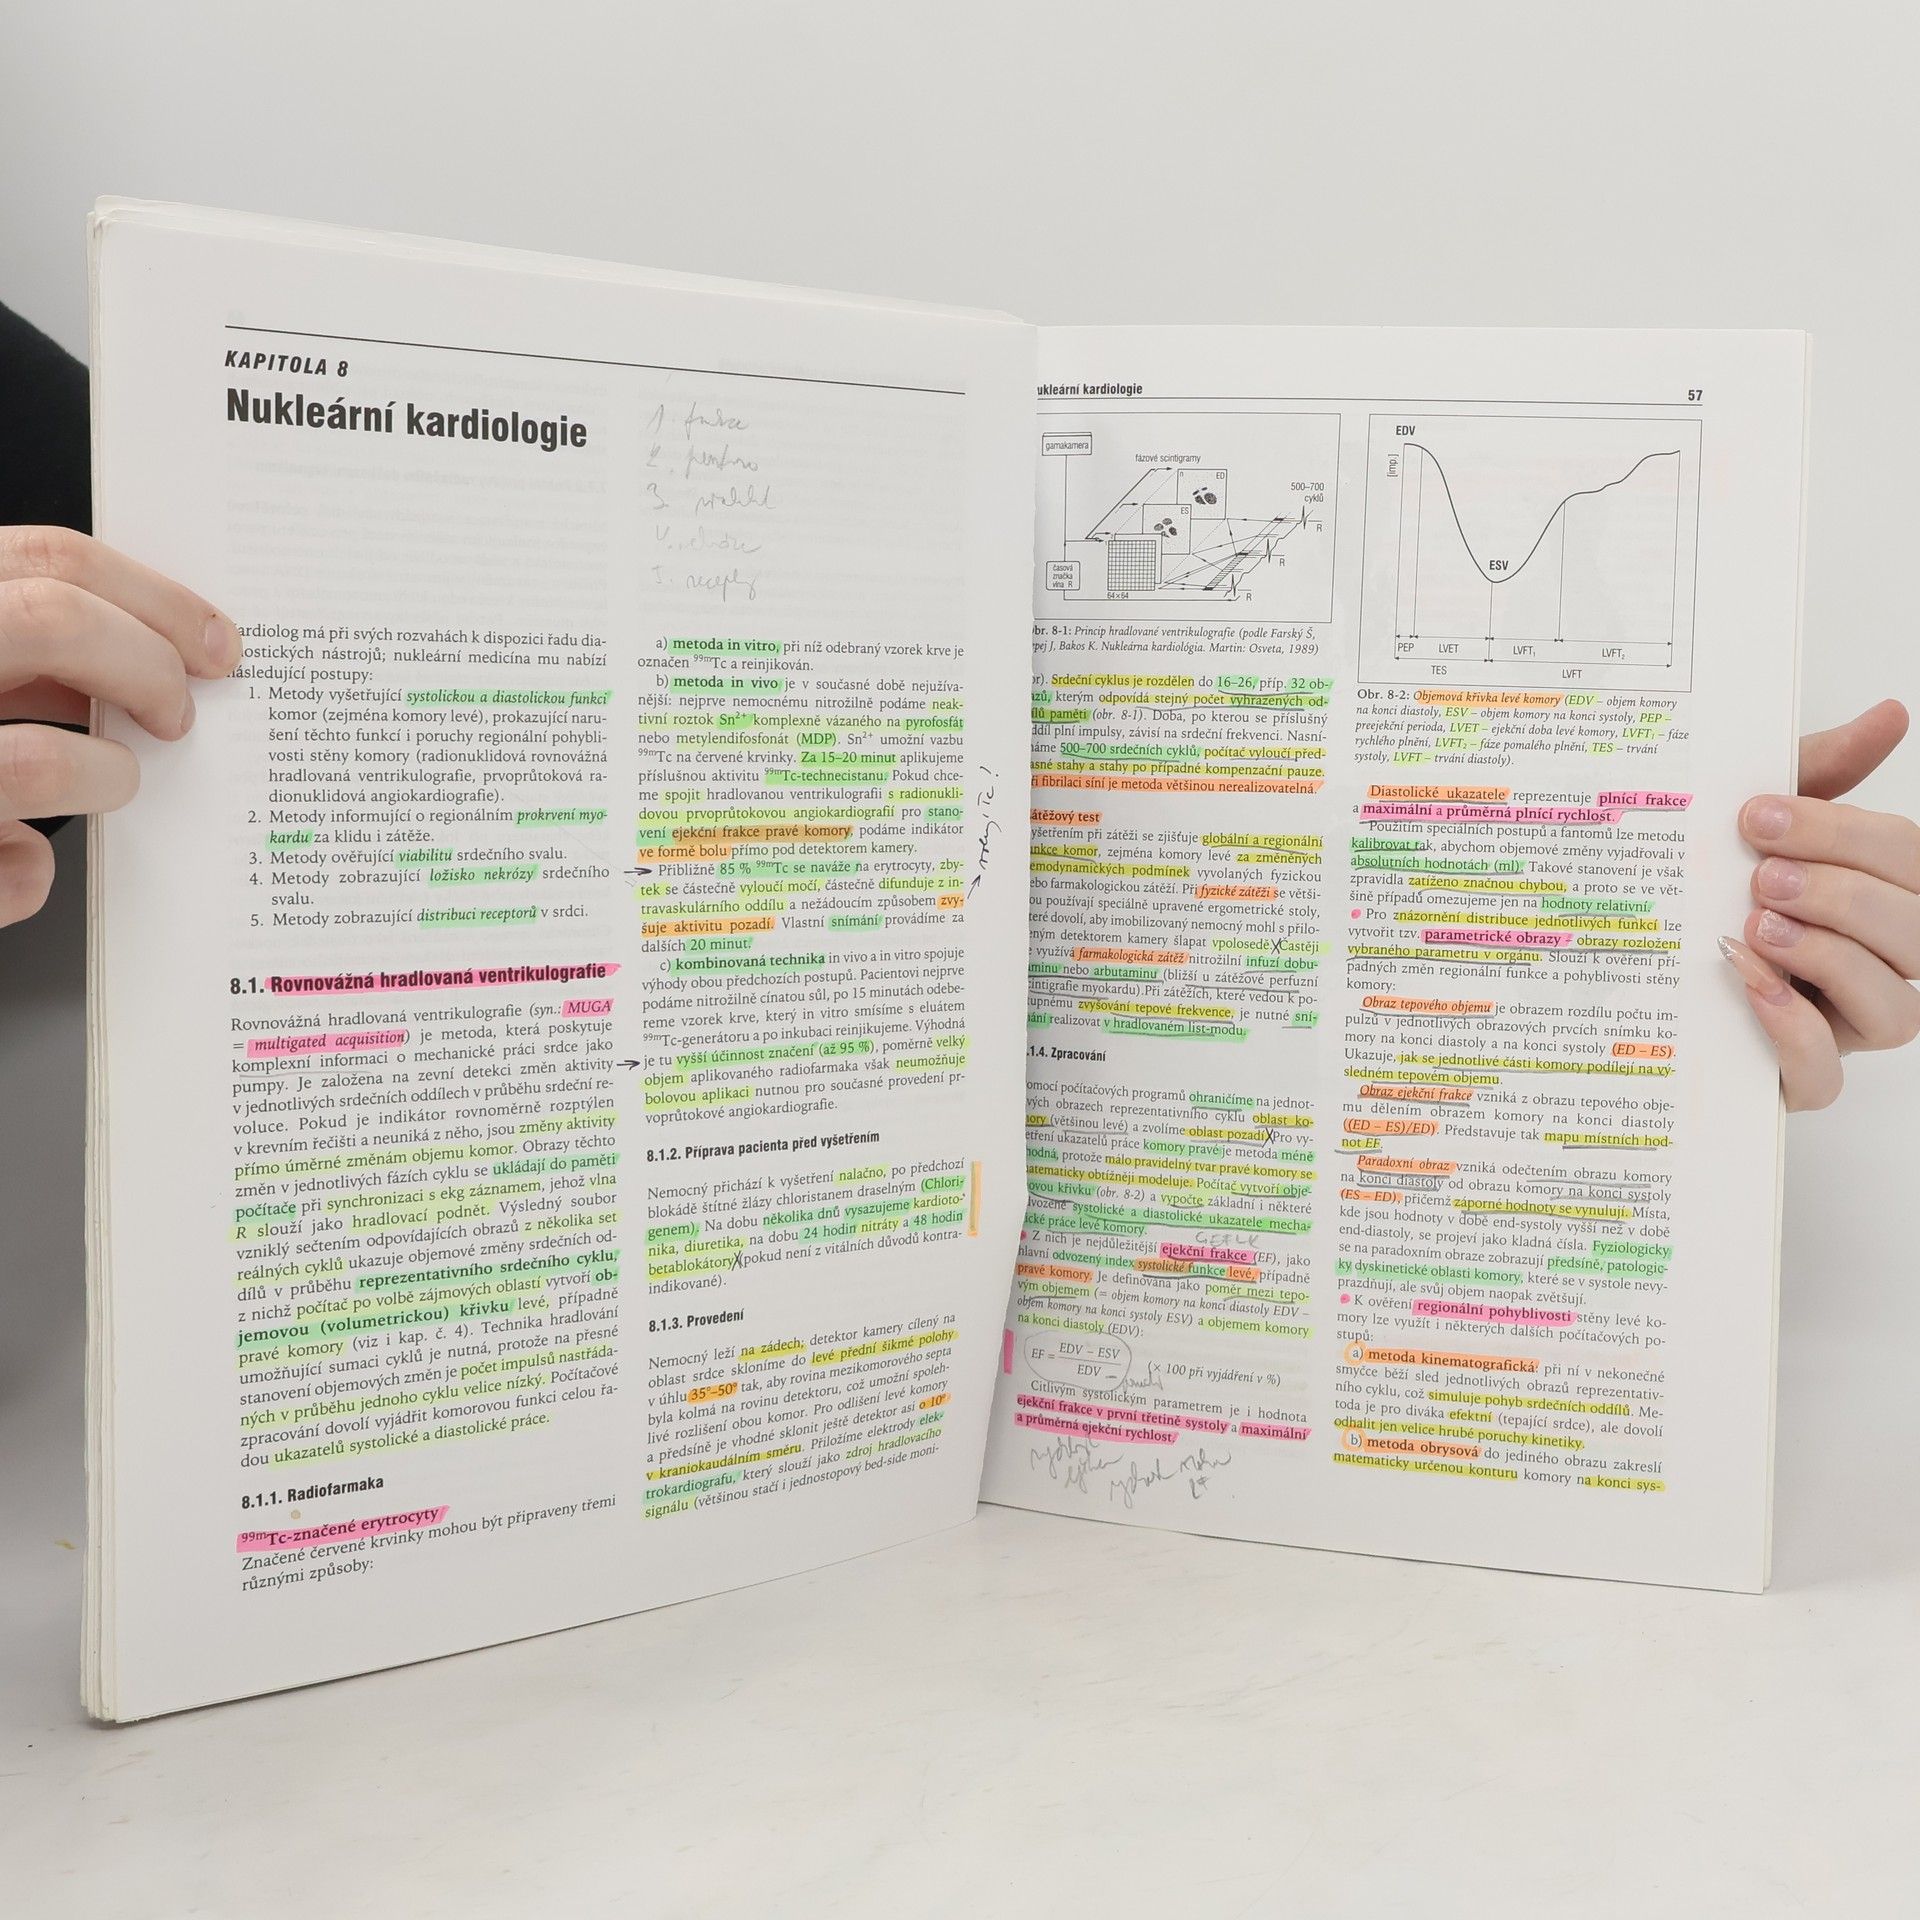 KAPITOLA 8
Nukleární kardiologie
ardiolog má při svých rozvahách k dispozici řadu dia-
nostických nástrojů; nukleární medicína mu nabízí
následující postupy:
1. Metody vyšetřující systolickou a diastolickou funkci
komor (zejména komory levé), prokazující naru-
šení těchto funkcí i poruchy regionální pohybli-
vosti stěny komory (radionuklidová rovnovážná
hradlovaná ventrikulografie, prvoprůtoková ra-
dionuklidová angiokardiografie).
2. Metody informující o regionálním prokrvení myo-
kardu za klidu i zátěže.
3. Metody ověřující viabilitu srdečního svalu.
4. Metody zobrazující ložisko nekrózy srdečního
svalu.
5. Metody zobrazující distribuci receptorů v srdci.
8.1. Rovnovážná hradlovaná ventrikulografie
Rovnovážná hradlovaná ventrikulografie (syn.: MUGA
= multigated acquisition) je metoda, která poskytuje
komplexní informaci o mechanické práci srdce jako
pumpy. Je založena na zevní detekci změn aktivity
v jednotlivých srdečních oddílech v průběhu srdeční re-
voluce. Pokud je indikátor rovnoměrně rozptýlen
v krevním řečišti a neuniká z něho, jsou změny aktivity
přímo úměrné změnám objemu komor. Obrazy těchto
změn v jednotlivých fázích cyklu se ukládají do paměti
počítače při synchronizaci s ekg záznamem, jehož vlna
R slouží jako hradlovací podnět. Výsledný soubor
vzniklý sečtením odpovídajících obrazů z několika set
reálných cyklů ukazuje objemové změny srdečních od-
dílů v průběhu reprezentativního srdečního cyklu,
z nichž počítač po volbě zájmových oblastí vytvoří ob-
jemovou (volumetrickou) křivku levé, případně
pravé komory (viz i kap. č. 4). Technika hradlování
umožňující sumaci cyklů je nutná, protože na přesné
stanovení objemových změn je počet impulsů nastřáda-
ných v průběhu jednoho cyklu velice nízký. Počítačové
zpracování dovolí vyjádřit komorovou funkci celou řa-
dou ukazatelů systolické a diastolické práce.
8.1.1. Radiofarmaka
99mTc-značené erytrocyty
Značené červené krvinky mohou být připraveny třemi
různými způsoby:
1.
2.
3.
5. receptory
a) metoda in vitro, při níž odebraný vzorek krve je
označen 99mTc a reinjikován.
b) metoda in vivo je v současné době nejužíva-
nější: nejprve nemocnému nitrožilně podáme neak-
tivní roztok Sn2+ komplexně vázaného na pyrofosfát
nebo metylendifosfonát (MDP). Sn2+ umožní vazbu
99mTc na červené krvinky. Za 15–20 minut aplikujeme
příslušnou aktivitu 99mTc-technecistanu. Pokud chce-
me spojit hradlovanou ventrikulografii s radionukli-
dovou prvoprůtokovou angiokardiografií pro stano-
vení ejekční frakce pravé komory, podáme indikátor
ve formě bolu přímo pod detektorem kamery.
Přibližně 85 % 99mTc se naváže na erytrocyty, zby-
tek se částečně vyloučí močí, částečně difunduje z in-
travaskulárního oddílu a nežádoucím způsobem zvy-
šuje aktivitu pozadí. Vlastní snímání provádíme za
dalších 20 minut.
c) kombinovaná technika in vivo a in vitro spojuje
výhody obou předchozích postupů. Pacientovi nejprve
podáme nitrožilně cínatou sůl, po 15 minutách odebe-
reme vzorek krve, který in vitro smísíme s eluátem
99mTc-generátoru a po inkubaci reinjikujeme. Výhodná
je tu vyšší účinnost značení (až 95 %), poměrně velký
objem aplikovaného radiofarmaka však neumožňuje
bolovou aplikaci nutnou pro současné provedení pr-
voprůtokové angiokardiografie.
8.1.2. Příprava pacienta před vyšetřením
Nemocný přichází k vyšetření nalačno, po předchozí
blokádě štítné žlázy chloristanem draselným (Chlori-
genem). Na dobu několika dnů vysazujeme kardioto-
nika, diuretika, na dobu 24 hodin nitráty a 48 hodin
betablokátory (pokud není z vitálních důvodů kontra-
indikované).
8.1.3. Provedení
Nemocný leží na zádech; detektor kamery cílený na
oblast srdce skloníme do levé přední šikmé polohy
v úhlu 35°–50° tak, aby rovina mezikomorového septa
byla kolmá na rovinu detektoru, což umožní spoleh-
livé rozlišení obou komor. Pro odlišení levé komory
a předsíně je vhodné sklonit ještě detektor asi o 10°
v kraniokaudálním směru. Přiložíme elektrody elek-
trokardiografu, který slouží jako zdroj hradlovacího
signálu (většinou stačí i jednostopový bed-side moni-
ukleární kardiologie
57
gamakamera
fázové scintigramy
ED
ES
500–700
cyklů
R
R
R
časová
značka
vlna R
64×64
br. 8-1: Princip hradlované ventrikulografie (podle Farský Š,
pej J, Bakos K. Nukleárna kardiológia. Martin: Osveta, 1989)
or). Srdeční cyklus je rozdělen do 16–26, příp. 32 ob-
azů, kterým odpovídá stejný počet vyhrazených od-
ílů paměti (obr. 8-1). Doba, po kterou se příslušný
ddíl plní impulsy, závisí na srdeční frekvenci. Nasní-
áme 500–700 srdečních cyklů, počítač vyloučí před-
asné stahy a stahy po případné kompenzační pauze.
ři fibrilaci síní je metoda většinou nerealizovatelná.
átěžový test
yšetřením při zátěži se zjišťuje globální a regionální
nkce komor, zejména komory levé za změněných
emodynamických podmínek vyvolaných fyzickou
ebo farmakologickou zátěží. Při fyzické zátěži se větši-
ou používají speciálně upravené ergometrické stoly,
teré dovolí, aby imobilizovaný nemocný mohl s přilo-
eným detektorem kamery šlapat vpolosedě. Častěji
e využívá farmakologická zátěž nitrožilní infuzí dobu-
aminu nebo arbutaminu (bližší u zátěžové perfuzní
cintigrafie myokardu). Při zátěžích, které vedou k po-
tupnému zvyšování tepové frekvence, je nutné sní-
ání realizovat v hradlovaném list-modu.
.1.4. Zpracování
omocí počítačových programů ohraničíme na jednot-
vých obrazech reprezentativního cyklu oblast ko-
ory (většinou levé) a zvolíme oblast pozadí. Pro vy-
etření ukazatelů práce komory pravé je metoda méně
hodná, protože málo pravidelný tvar pravé komory se
atematicky obtížněji modeluje. Počítač vytvoří obje-
ovou křivku (obr. 8-2) a vypočte základní i některé
dvozené systolické a diastolické ukazatele mecha-
ické práce levé komory.
GEFLK
Z nich je nejdůležitější ejekční frakce (EF), jako
hlavní odvozený index systolické funkce levé, případně
pravé komory. Je definována jako poměr mezi tepo-
vým objemem (= objem komory na konci diastoly EDV –
objem komory na konci systoly ESV) a objemem komory
na konci diastoly (EDV):
EF = EDV – ESV / EDV (× 100 při vyjádření v %)
Citlivým systolickým parametrem je i hodnota
ejekční frakce v první třetině systoly a maximální
a průměrná ejekční rychlost.
EDV
[imp.]
ESV
PEP LVET LVFT1 LVFT2
TES LVFT
Obr. 8-2: Objemová křivka levé komory (EDV – objem komory
na konci diastoly, ESV – objem komory na konci systoly, PEP –
preejekční perioda, LVET – ejekční doba levé komory, LVFT1 – fáze
rychlého plnění, LVFT2 – fáze pomalého plnění, TES – trvání
systoly, LVFT – trvání diastoly).
Diastolické ukazatele reprezentuje plnící frakce
a maximální a průměrná plnící rychlost.
Použitím speciálních postupů a fantomů lze metodu
kalibrovat tak, abychom objemové změny vyjadřovali v
absolutních hodnotách (ml). Takové stanovení je však
zpravidla zatíženo značnou chybou, a proto se ve vět-
šině případů omezujeme jen na hodnoty relativní.
Pro znázornění distribuce jednotlivých funkcí lze
vytvořit tzv. parametrické obrazy – obrazy rozložení
vybraného parametru v orgánu. Slouží k ověření pří-
padných změn regionální funkce a pohyblivosti stěny
komory:
Obraz tepového objemu je obrazem rozdílu počtu im-
pulzů v jednotlivých obrazových prvcích snímku ko-
mory na konci diastoly a na konci systoly (ED – ES).
Ukazuje, jak se jednotlivé části komory podílejí na vý-
sledném tepovém objemu.
Obraz ejekční frakce vzniká z obrazu tepového obje-
mu dělením obrazem komory na konci diastoly
((ED – ES)/ED). Představuje tak mapu místních hod-
not EF.
Paradoxní obraz vzniká odečtením obrazu komory
na konci diastoly od obrazu komory na konci systoly
(ES – ED), přičemž záporné hodnoty se vynulují. Místa,
kde jsou hodnoty v době end-systoly vyšší než v době
end-diastoly, se projeví jako kladná čísla. Fyziologicky
se na paradoxním obraze zobrazují předsíně, patologic-
ky dyskinetické oblasti komory, které se v systole nevy-
prazdňují, ale svůj objem naopak zvětšují.
K ověření regionální pohyblivosti stěny levé ko-
mory lze využít i některých dalších počítačových po-
stupů:
a) metoda kinematografická: při ní v nekonečné
smyčce běží sled jednotlivých obrazů reprezentativ-
ního cyklu, což simuluje pohyb srdečních oddílů. Me-
toda je pro diváka efektní (tepající srdce), ale dovolí
odhalit jen velice hrubé poruchy kinetiky.
b) metoda obrysová do jediného obrazu zakreslí
matematicky určenou konturu komory na konci sys-